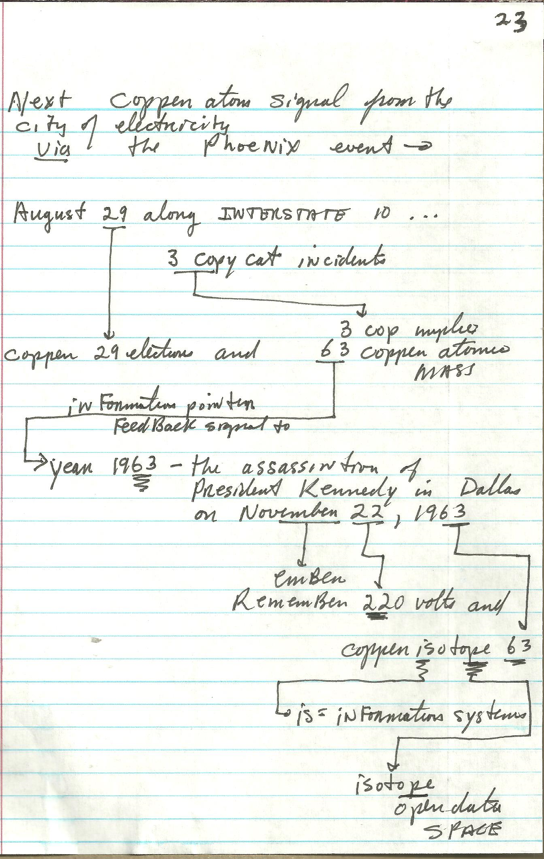 23
Next copper atom signal from the
city of electricity
via the PhoeNix event →
August 29 along INTERSTATE 10 ...
3 copy cat incidents
3 cop implies
copper 29 electrons and 63 copper atomic
MASS
inFormation pointer
FeedBack signal to
year 1963 - the assassination of
President Kennedy in Dallas
on November 22, 1963
emBer
RememBer 220 volts and
copper isotope 63
is = inFormation systems
isotope
open data
SPACE